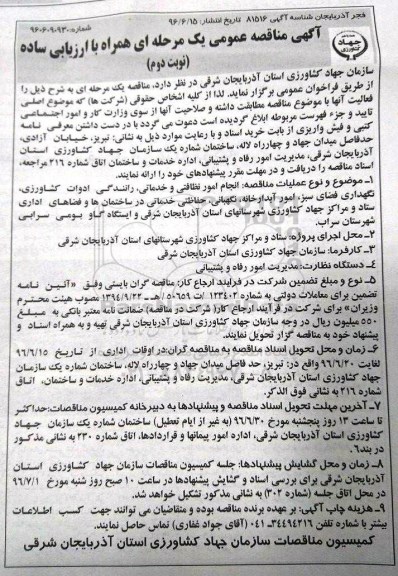 فجر آذربایجان شناسه آگهی ۸۱۵۱۶ تاریخ انتشار: ۹۶/۶/۱۵
شماره: ۹۶۰۶۰۹۰۹۳۰
آگهی مناقصه عمومی یک مرحله ای همراه با ارزیابی ساده
(نوبت دوم)
سازمان جهاد کشاورزی استان آذربایجان شرقی در نظر دارد، مناقصه یک مرحله ای به شرح ذیل را
از طریق فراخوان عمومی برگزار نماید. لذا از کلیه اشخاص حقوقی (شرکت ها) که موضوع اصلی
فعالیت آنها با موضوع مناقصه مطابقت داشته و صلاحیت آنها از سوی وزارت کار و امور اجتماعی
تایید و جزء فهرست مربوطه ابلاغ گردیده است دعوت می گردد با در دست داشتن معرفی نامه
کتبی و فیش واریزی از بابت خرید اسناد و با رعایت موارد ذیل به نشانی: تبریز، خیابان آزادی،
حدفاصل میدان جهاد و چهارراه لاله، ساختمان شماره یک سازمان جهاد کشاورزی استان
آذربایجان شرقی، مدیریت امور رفاه و پشتیبانی، اداره خدمات و ساختمان اتاق شماره ۲۱۶ مراجعه،
اسناد مناقصه را دریافت و در مهلت مقرر پیشنهادهای خود را ارائه نمایند.
۱- موضوع و نوع عملیات مناقصه: انجام امور نظافتی و خدماتی، رانندگی ادوات کشاورزی،
نگهداری فضای سبز، امور آبدارخانه، نگهبانی، حفاظتی خدماتی در ساختمان ها و فضاهای اداری
ستاد و مراکز جهاد کشاورزی شهرستانهای استان آذربایجان شرقی و ایستگاه گاو بومی سرابی
شهرستان سراب.
۲- محل اجرای پروژه: ستاد و مراکز جهاد کشاورزی شهرستانهای استان آذربایجان شرقی
۳- کارفرما: سازمان جهاد کشاورزی استان آذربایجان شرقی
۴- دستگاه نظارت: مدیریت امور رفاه و پشتیبانی
۵- نوع و مبلغ تضمین شرکت در فرآیند ارجاع کار: مناقصه گران بایستی وفق «آئین نامه
تضمین برای معاملات دولتی به شماره ۱۲۳۴۰۲/ت ۵۰۶۵۹ هـ ـ ۱۳۹۴/۹/۲۲ مصوب هیئت محترم
وزیران» برای شرکت در فرآیند ارجاع کار (شرکت در مناقصه) ضمانت نامه معتبر بانکی به مبلغ
۵۵۰ میلیون ریال در وجه سازمان جهاد کشاورزی استان آذربایجان شرقی تهیه و به همراه اسناد و
پیشنهاد خود به مناقصه گزار تحویل نمایند.
۶- زمان و محل تحویل اسناد مناقصه به مناقصه گران: در اوقات اداری از تاریخ ۹۶/۶/۱۵
لغایت ۹۶/۶/۲۰ واقع در: تبریز، حد فاصل میدان جهاد و چهارراه لاله، ساختمان شماره یک سازمان
جهاد کشاورزی استان آذربایجان شرقی، مدیریت رفاه و پشتیبانی، اداره خدمات و ساختمان، اتاق
شماره ۲۱۶ به نشانی فوق الذکر.
۷- آخرین مهلت تحویل اسناد مناقصه و پیشنهادها به دبیرخانه کمیسیون مناقصات: حداکثر
تا ساعت ۱۳ روز پنجشنبه مورخ ۹۶/۶/۳۰ (به غیر از ایام تعطیل) ساختمان شماره یک سازمان جهاد
کشاورزی استان آذربایجان شرقی، اداره امور پیمانها و قراردادها، اتاق شماره ۲۳۰ به نشانی مذکور
در بند۶.
۸- زمان و محل گشایش پیشنهادها: جلسه کمیسیون مناقصات سازمان جهاد کشاورزی استان
آذربایجان شرقی برای بررسی اسناد و گشایش پیشنهادها در ساعت ۱۰ صبح روز شنبه مورخ ۹۶/۷/۱
در محل اتاق جلسه (شماره ۳۰۲) به نشانی مذکور تشکیل خواهد شد.
۹- هزینه چاپ آگهی: بر عهده برنده مناقصه بوده و متقاضیان می توانند جهت کسب اطلاعات
بیشتر با شماره تلفن ۳۴۴۹۴۲۱۶-۰۴۱ (آقای جواد غفاری) تماس حاصل نمایند.
کمیسیون مناقصات سازمان جهاد کشاورزی استان آذربایجان شرقی